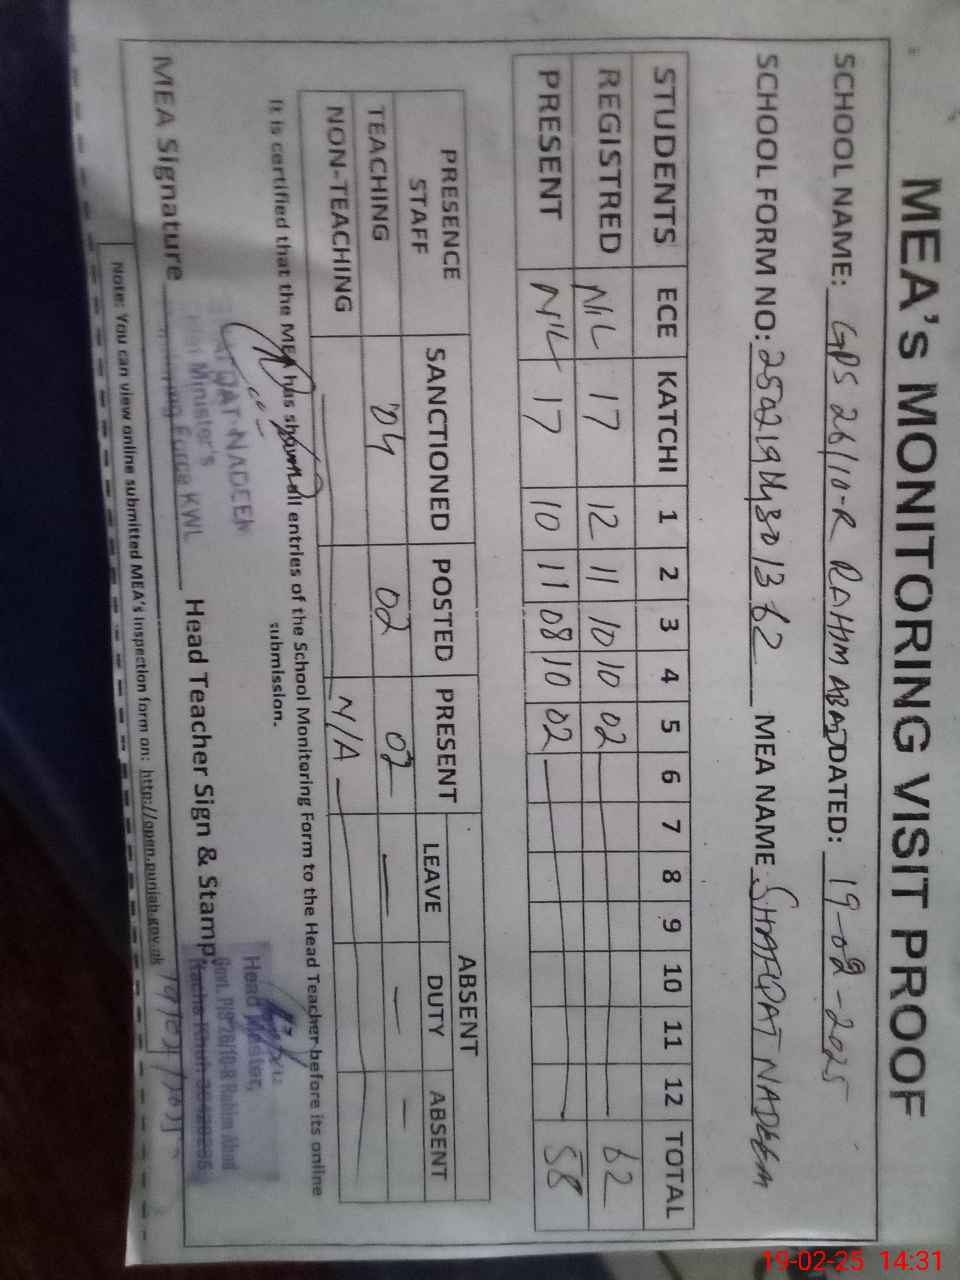 MEA's MONITORING VISIT PROOF
SCHOOL NAME: GPS 26/10-R RAHIM ABAD DATED: 19-02-2025
SCHOOL FORM NO: MEA NAME SHAFQAT NADEEM
STUDENTS ECE KATCHI 1 2 3 4 5 6 7 8 9 10 11 12 TOTAL
REGISTRED NIL 17 12 11 10 10 02 62
PRESENT NIL 17 10 11 08 10 02 58
PRESENCE STAFF SANCTIONED POSTED PRESENT ABSENT
LEAVE DUTY ABSENT
TEACHING 04 02 02 — — —
NON-TEACHING — N/A —
It is certified that the MEA has shown all entries of the School Monitoring Form to the Head Teacher before its online
submission.
SHAFQAT NADEEM
Chief Minister's
Monitoring Force KWL
MEA Signature Head Teacher Sign & Stamp
Head Master,
Govt. P/S 26/10-R Rahim Abad
Kacha Khuh
19/02/2025
Note: You can view online submitted MEA's inspection form on: http://open.punjab.gov.pk
19-02-25 14:31